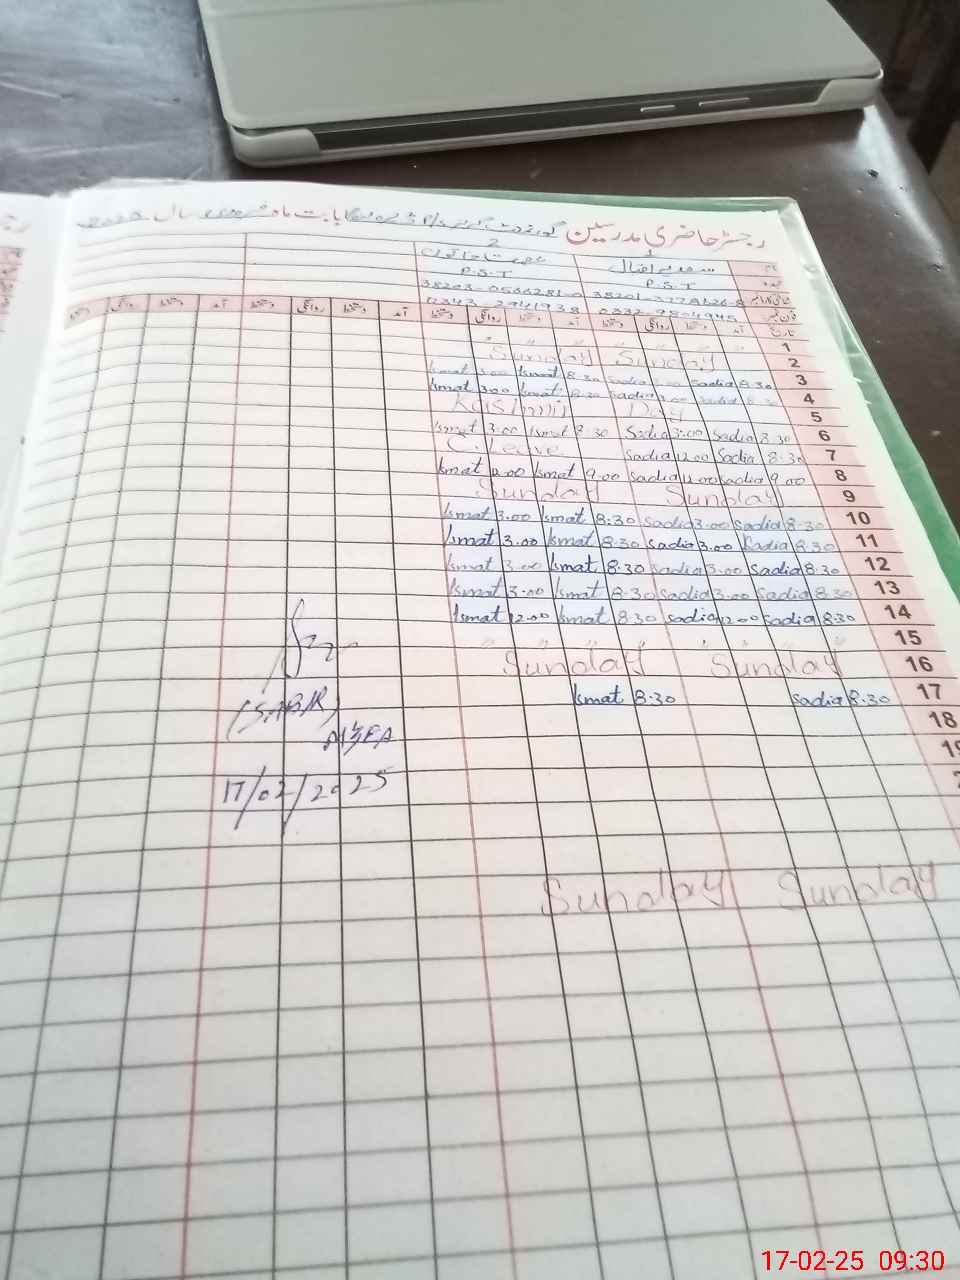 رجسٹر حاضری مدرسین بابت ماہ فروری سال
1 2
P.S.T P.S.T
تاریخ آمد دستخط روانگی دستخط آمد دستخط روانگی دستخط آمد دستخط روانگی دستخط آمد دستخط روانگی دستخط
1
Sunday Sunday 2
Ismat 3.00 Ismat 8.30 Sadia 3.00 Sadia 8.30 3
Ismat 3.00 Ismat 8.30 Sadia 3.00 Sadia 8.30 4
Kashmir Day 5
Ismat 3.00 Ismat 8.30 Sadia 3.00 Sadia 8.30 6
C. Leave Sadia 12.00 Sadia 8.30 7
Ismat Ismat 9.00 Sadia Sadia 9.00 8
Sunday Sunday 9
Ismat 3.00 Ismat 8:30 Sadia 3.00 Sadia 8.30 10
Ismat 3.00 Ismat 8.30 Sadia 3.00 Sadia 8.30 11
Ismat 3.00 Ismat 8.30 Sadia 3.00 Sadia 8.30 12
Ismat 3.00 Ismat 8.30 Sadia 3.00 Sadia 8.30 13
Ismat 12.00 Ismat 8.30 Sadia 12.00 Sadia 8.30 14
15
Sunday Sunday 16
Ismat 8.30 Sadia 8.30 17
18
(SABIR)
17/02/2025
Sunday Sunday
17-02-25 09:30